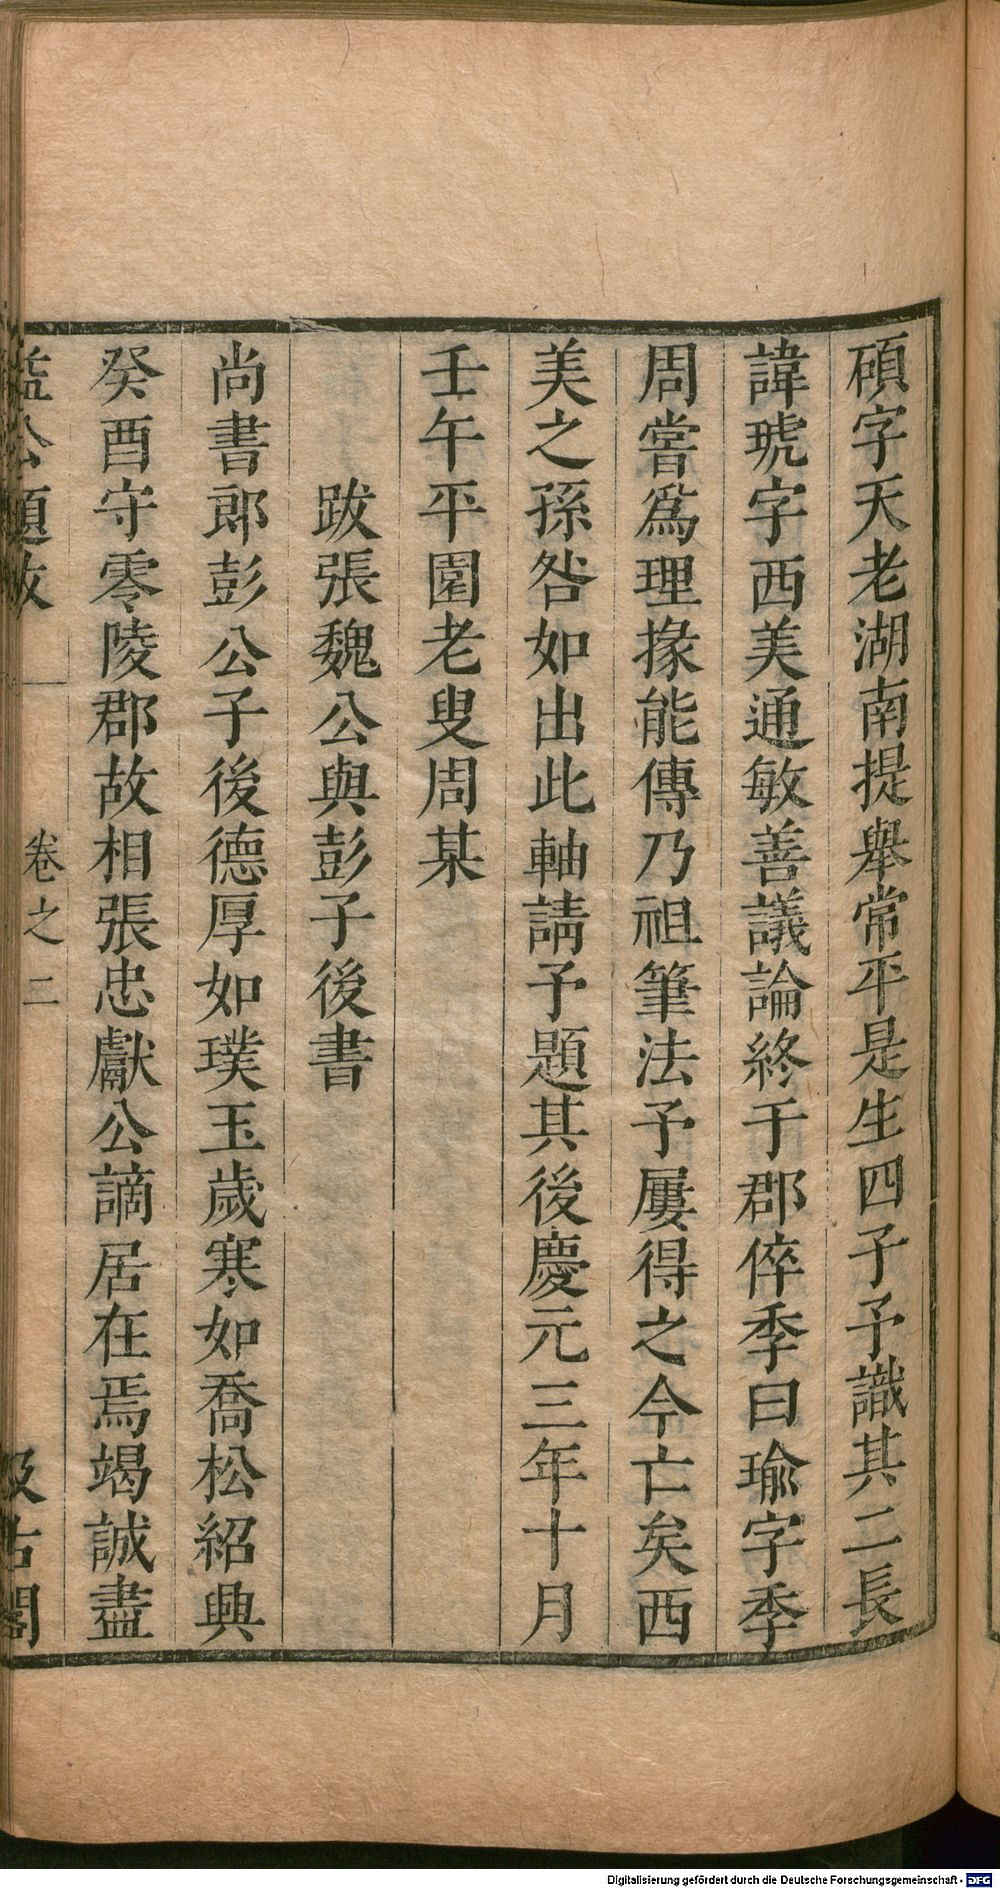 碩字天老湖南提舉常平是生四子予識其二長
諱琥字西美通敏善議論終于郡倅季曰瑜字季
周嘗爲理掾能傳乃祖筆法予屢得之今亡矣西
美之孫明如出此軸請予題其後慶元三年十月
壬午平園老叟周某
跋張魏公與彭子後書
尚書郎彭公子後德厚如璞玉歲寒如喬松紹興
癸酉守零陵郡故相張忠獻公謫居在焉竭誠盡
益公題跋
卷之二
汲古閣
Digitalisierung gefördert durch die Deutsche Forschungsgemeinschaft - DFG